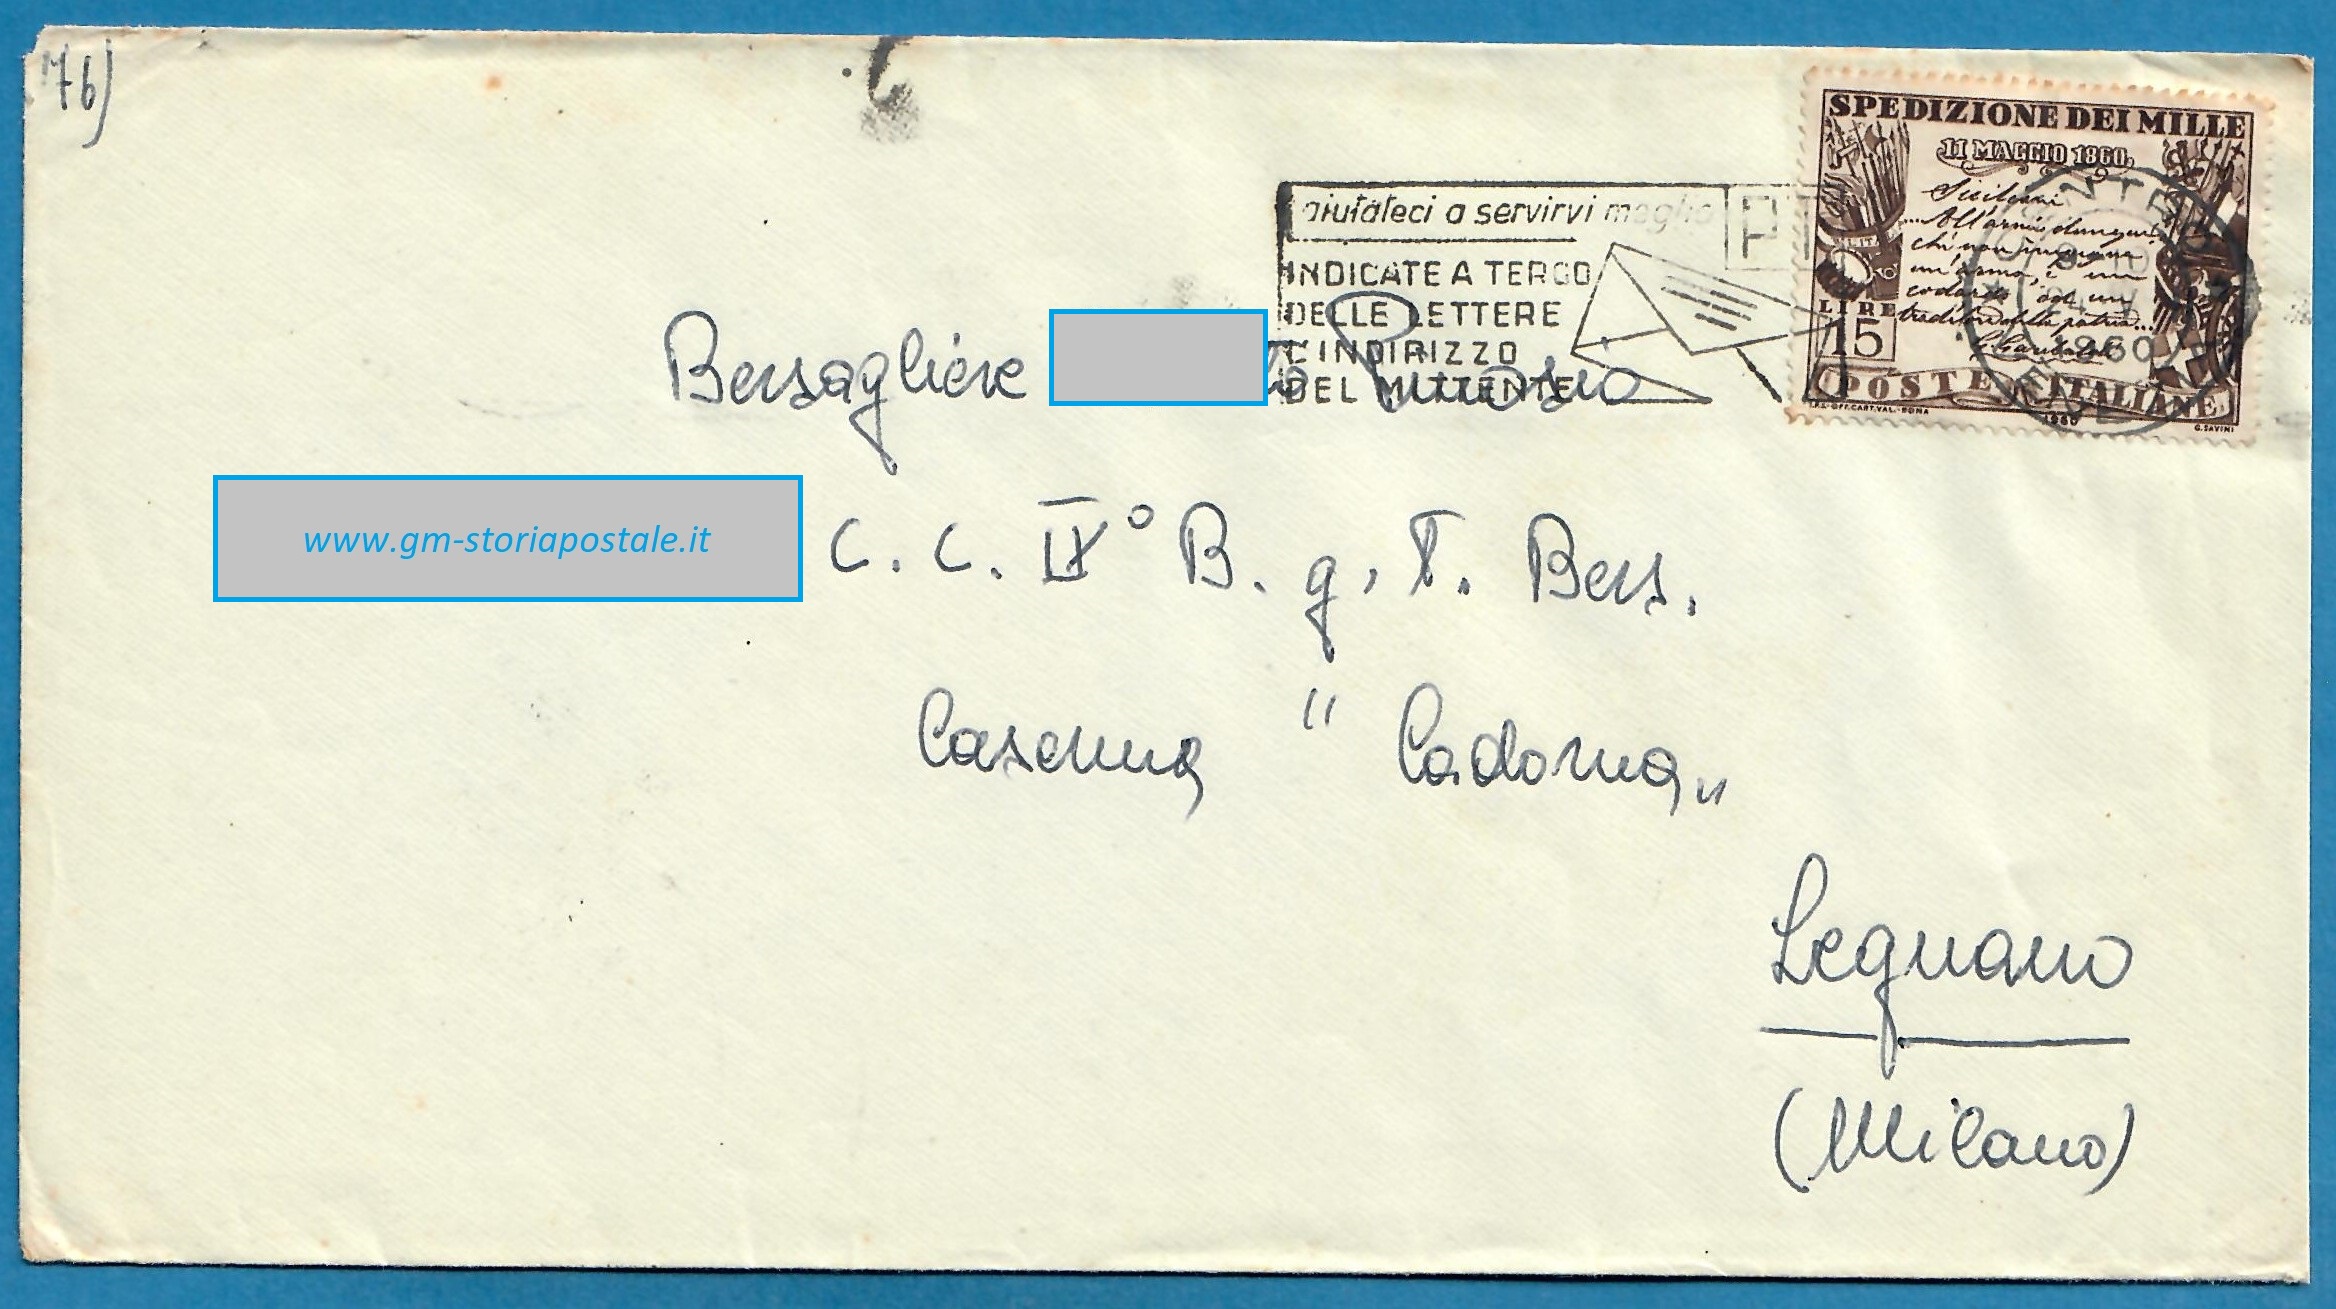 76)
SPEDIZIONE DEI MILLE
11 MAGGIO 1860.
Siciliani
....All'armi dunque:
chi non impugna
un'arma, è un
codardo od un
traditore della patria...
G. Garibaldi
LIRE
15
POSTE ITALIANE
I.P.S.-OFF.CART.VAL.-ROMA
1960
G. SAVINI
1960
aiutateci a servirvi meglio
INDICATE A TERGO
DELLE LETTERE
L'INDIRIZZO
DEL MITTENTE
Bersagliere
www.gm-storiapostale.it
C. C. IV° B. g. T. Bers.
Caserma " Cadorna "
Legnano
(Milano)